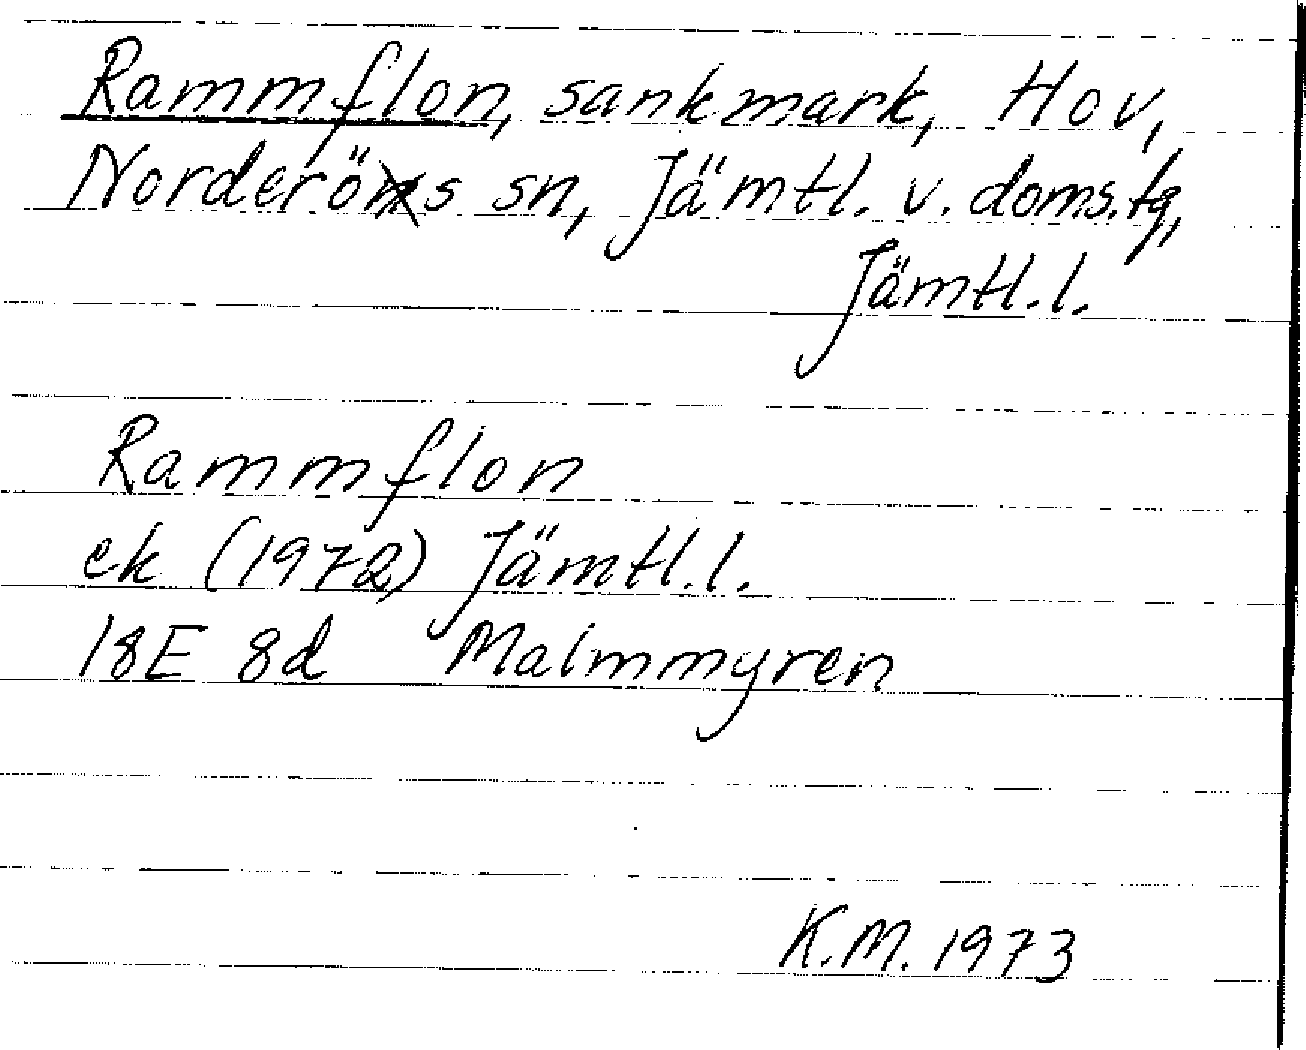 Rammflon, sankmark, Hov,
Norderös sn, Jämtl. v. doms.tg,
Jämtl.l.
Rammflon
ek (1972) Jämtl.l.
18E 8d Malmmyren
K.M. 1973